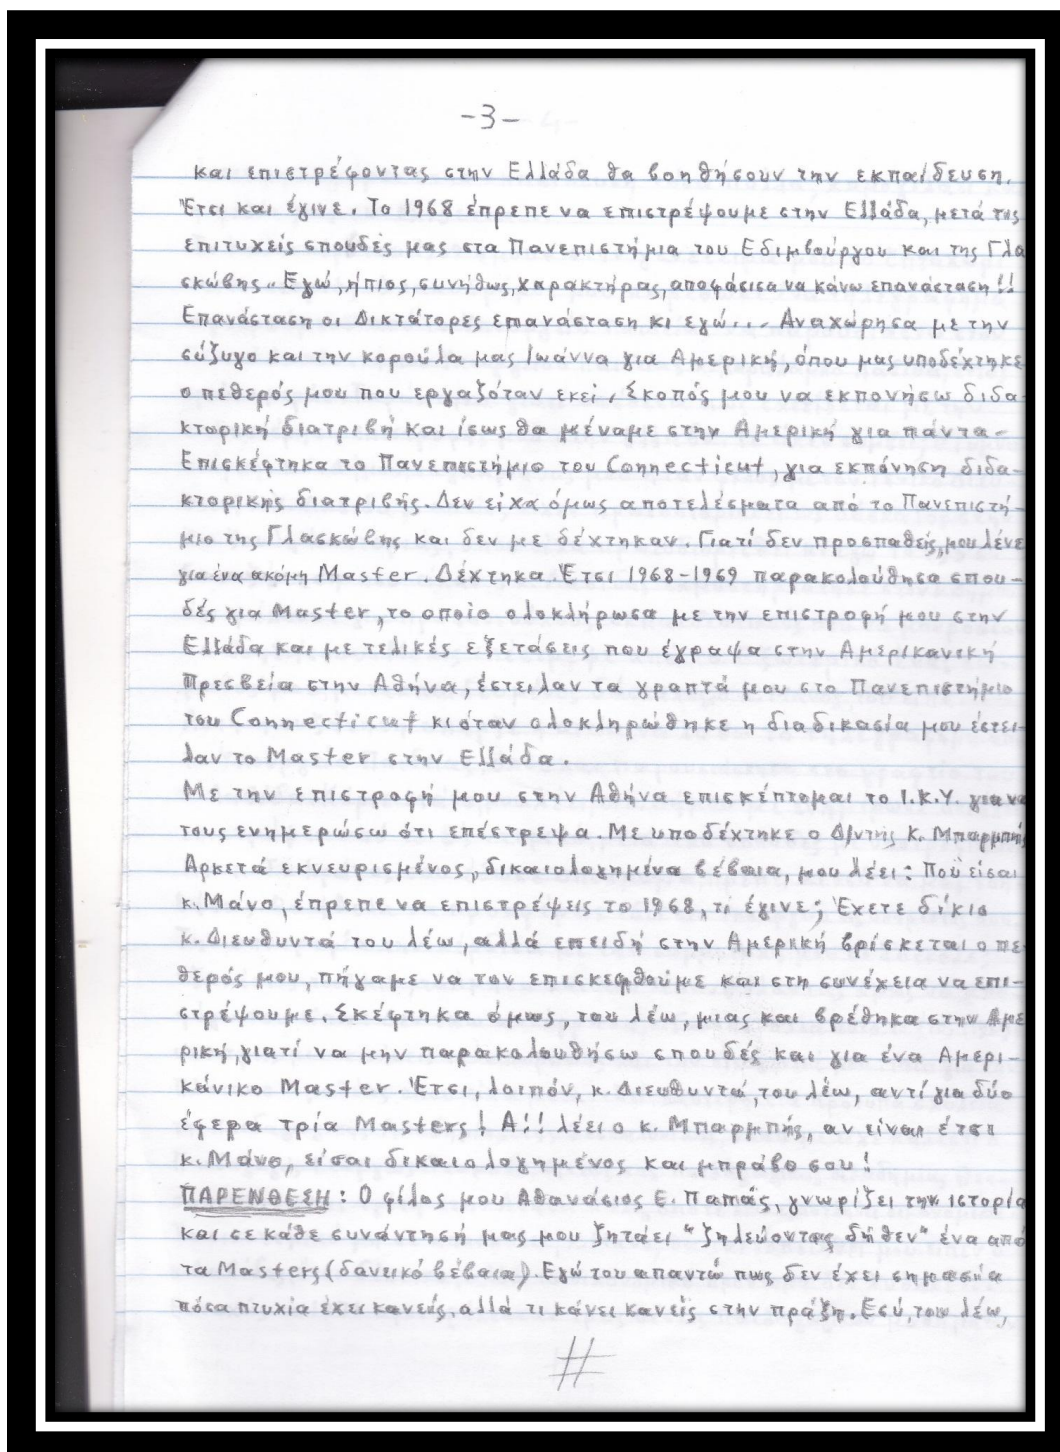 -3-
και επιστρέφοντας στην Ελλάδα θα βοηθήσουν την εκπαίδευση.
Έτσι και έγινε. Το 1968 έπρεπε να επιστρέψουμε στην Ελλάδα, μετά τις
επιτυχείς σπουδές μας στα Πανεπιστήμια του Εδιμβούργου και της Γλα
σκώβης.. Εγώ, ήπιος, συνήθως, χαρακτήρας, αποφάσισα να κάνω επανάσταση!!
Επανάσταση οι Δικτάτορες επανάσταση κι εγώ... Αναχώρησα με την
σύζυγο και την κορούλα μας Ιωάννα για Αμερική, όπου μας υποδέχτηκε
ο πεθερός μου που εργαζόταν εκεί. Σκοπός μου να εκπονήσω διδα
κτορική διατριβή και ίσως θα μέναμε στην Αμερική για πάντα-
Επισκέφτηκα το Πανεπιστήμιο του Connecticut, για εκπόνηση διδα-
κτορικής διατριβής. Δεν είχα όμως αποτελέσματα από το Πανεπιστή-
μιο της Γλασκώβης και δεν με δέχτηκαν. Γιατί δεν προσπαθείς, μου λένε
για ένα ακόμη Master. Δέχτηκα. Έτσι 1968-1969 παρακολούθησα σπου-
δές για Master, το οποίο ολοκλήρωσα με την επιστροφή μου στην
Ελλάδα και με τελικές εξετάσεις που έγραψα στην Αμερικανική
Πρεσβεία στην Αθήνα, έστειλαν τα γραπτά μου στο Πανεπιστήμιο
του Connecticut κι όταν ολοκληρώθηκε η διαδικασία μου έστει-
λαν το Master στην Ελλάδα.
Με την επιστροφή μου στην Αθήνα επισκέπτομαι το Ι.Κ.Υ. για να
τους ενημερώσω ότι επέστρεψα. Με υποδέχτηκε ο Δ/ντής κ. Μπαρμπής
Αρκετά εκνευρισμένος, δικαιολογημένα βέβαια, μου λέει: Πού είσαι
κ. Μάνο, έπρεπε να επιστρέψεις το 1968, τι έγινε; Έχετε δίκιο
κ. Διευθυντά του λέω, αλλά επειδή στην Αμερική βρίσκεται ο πε
θερός μου, πήγαμε να τον επισκεφθούμε και στη συνέχεια να επι-
στρέψουμε. Σκέφτηκα όμως, του λέω, μιας και βρέθηκα στην Αμε
ρική, γιατί να μην παρακολουθήσω σπουδές και για ένα Αμερι-
κάνικο Master. Έτσι, λοιπόν, κ. Διευθυντά, του λέω, αντί για δύο
έφερα τρία Masters! Α!! λέει ο κ. Μπαρμπής, αν είναι έτσι
κ. Μάνο, είσαι δικαιολογημένος και μπράβο σου!
ΠΑΡΕΝΘΕΣΗ: Ο φίλος μου Αθανάσιος Ε. Παπάς, γνωρίζει την ιστορία
και σε κάθε συνάντησή μας μου ζητάει "ζηλεύοντας δήθεν" ένα από
τα Masters (δανεικό βέβαια). Εγώ του απαντώ πως δεν έχει σημασία
πόσα πτυχία έχει κανείς, αλλά τι κάνει κανείς στην πράξη. Εσύ, του λέω,
#